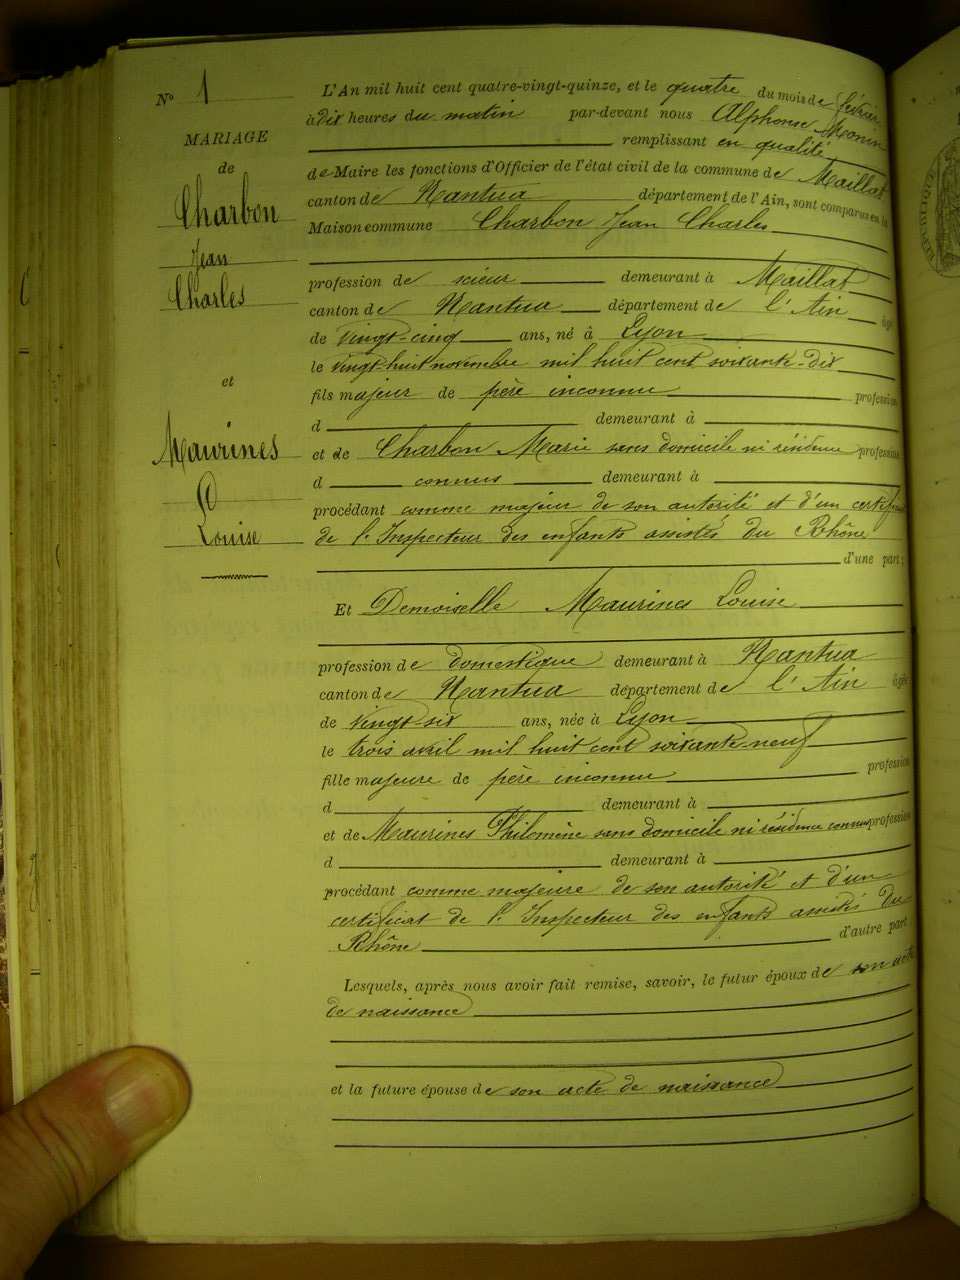 N° 1
MARIAGE
de
Charbon
Jean
Charles
et
Maurines
Louise
L'An mil huit cent quatre-vingt-quinze, et le quatre du mois de février
à dix heures du matin par-devant nous Alphonse Monin
remplissant en qualité
de Maire les fonctions d'Officier de l'état civil de la commune de Maillat
canton de Nantua département de l'Ain, sont comparus en la
Maison commune Charbon Jean Charles
profession de scieur demeurant à Maillat
canton de Nantua département de l'Ain âgé
de vingt-cinq ans, né à Lyon
le vingt-huit novembre mil huit cent soixante-dix
fils majeur de père inconnu profession
d demeurant à
et de Charbon Marie sans domicile ni résidence profession
d connus demeurant à
procédant comme majeur de son autorité et d'un certificat
de l'Inspecteur des enfants assistés du Rhône
d'une part;
Et Demoiselle Maurines Louise
profession de domestique demeurant à Nantua
canton de Nantua département de l'Ain âgée
de vingt-six ans, née à Lyon
le trois avril mil huit cent soixante-neuf
fille majeure de père inconnu profession
d demeurant à
et de Maurines Philomène sans domicile ni résidence connus profession
d demeurant à
procédant comme majeure de son autorité et d'un
certificat de l'Inspecteur des enfants assistés du
Rhône d'autre part
Lesquels, après nous avoir fait remise, savoir, le futur époux de son acte
de naissance
et la future épouse de son acte de naissance